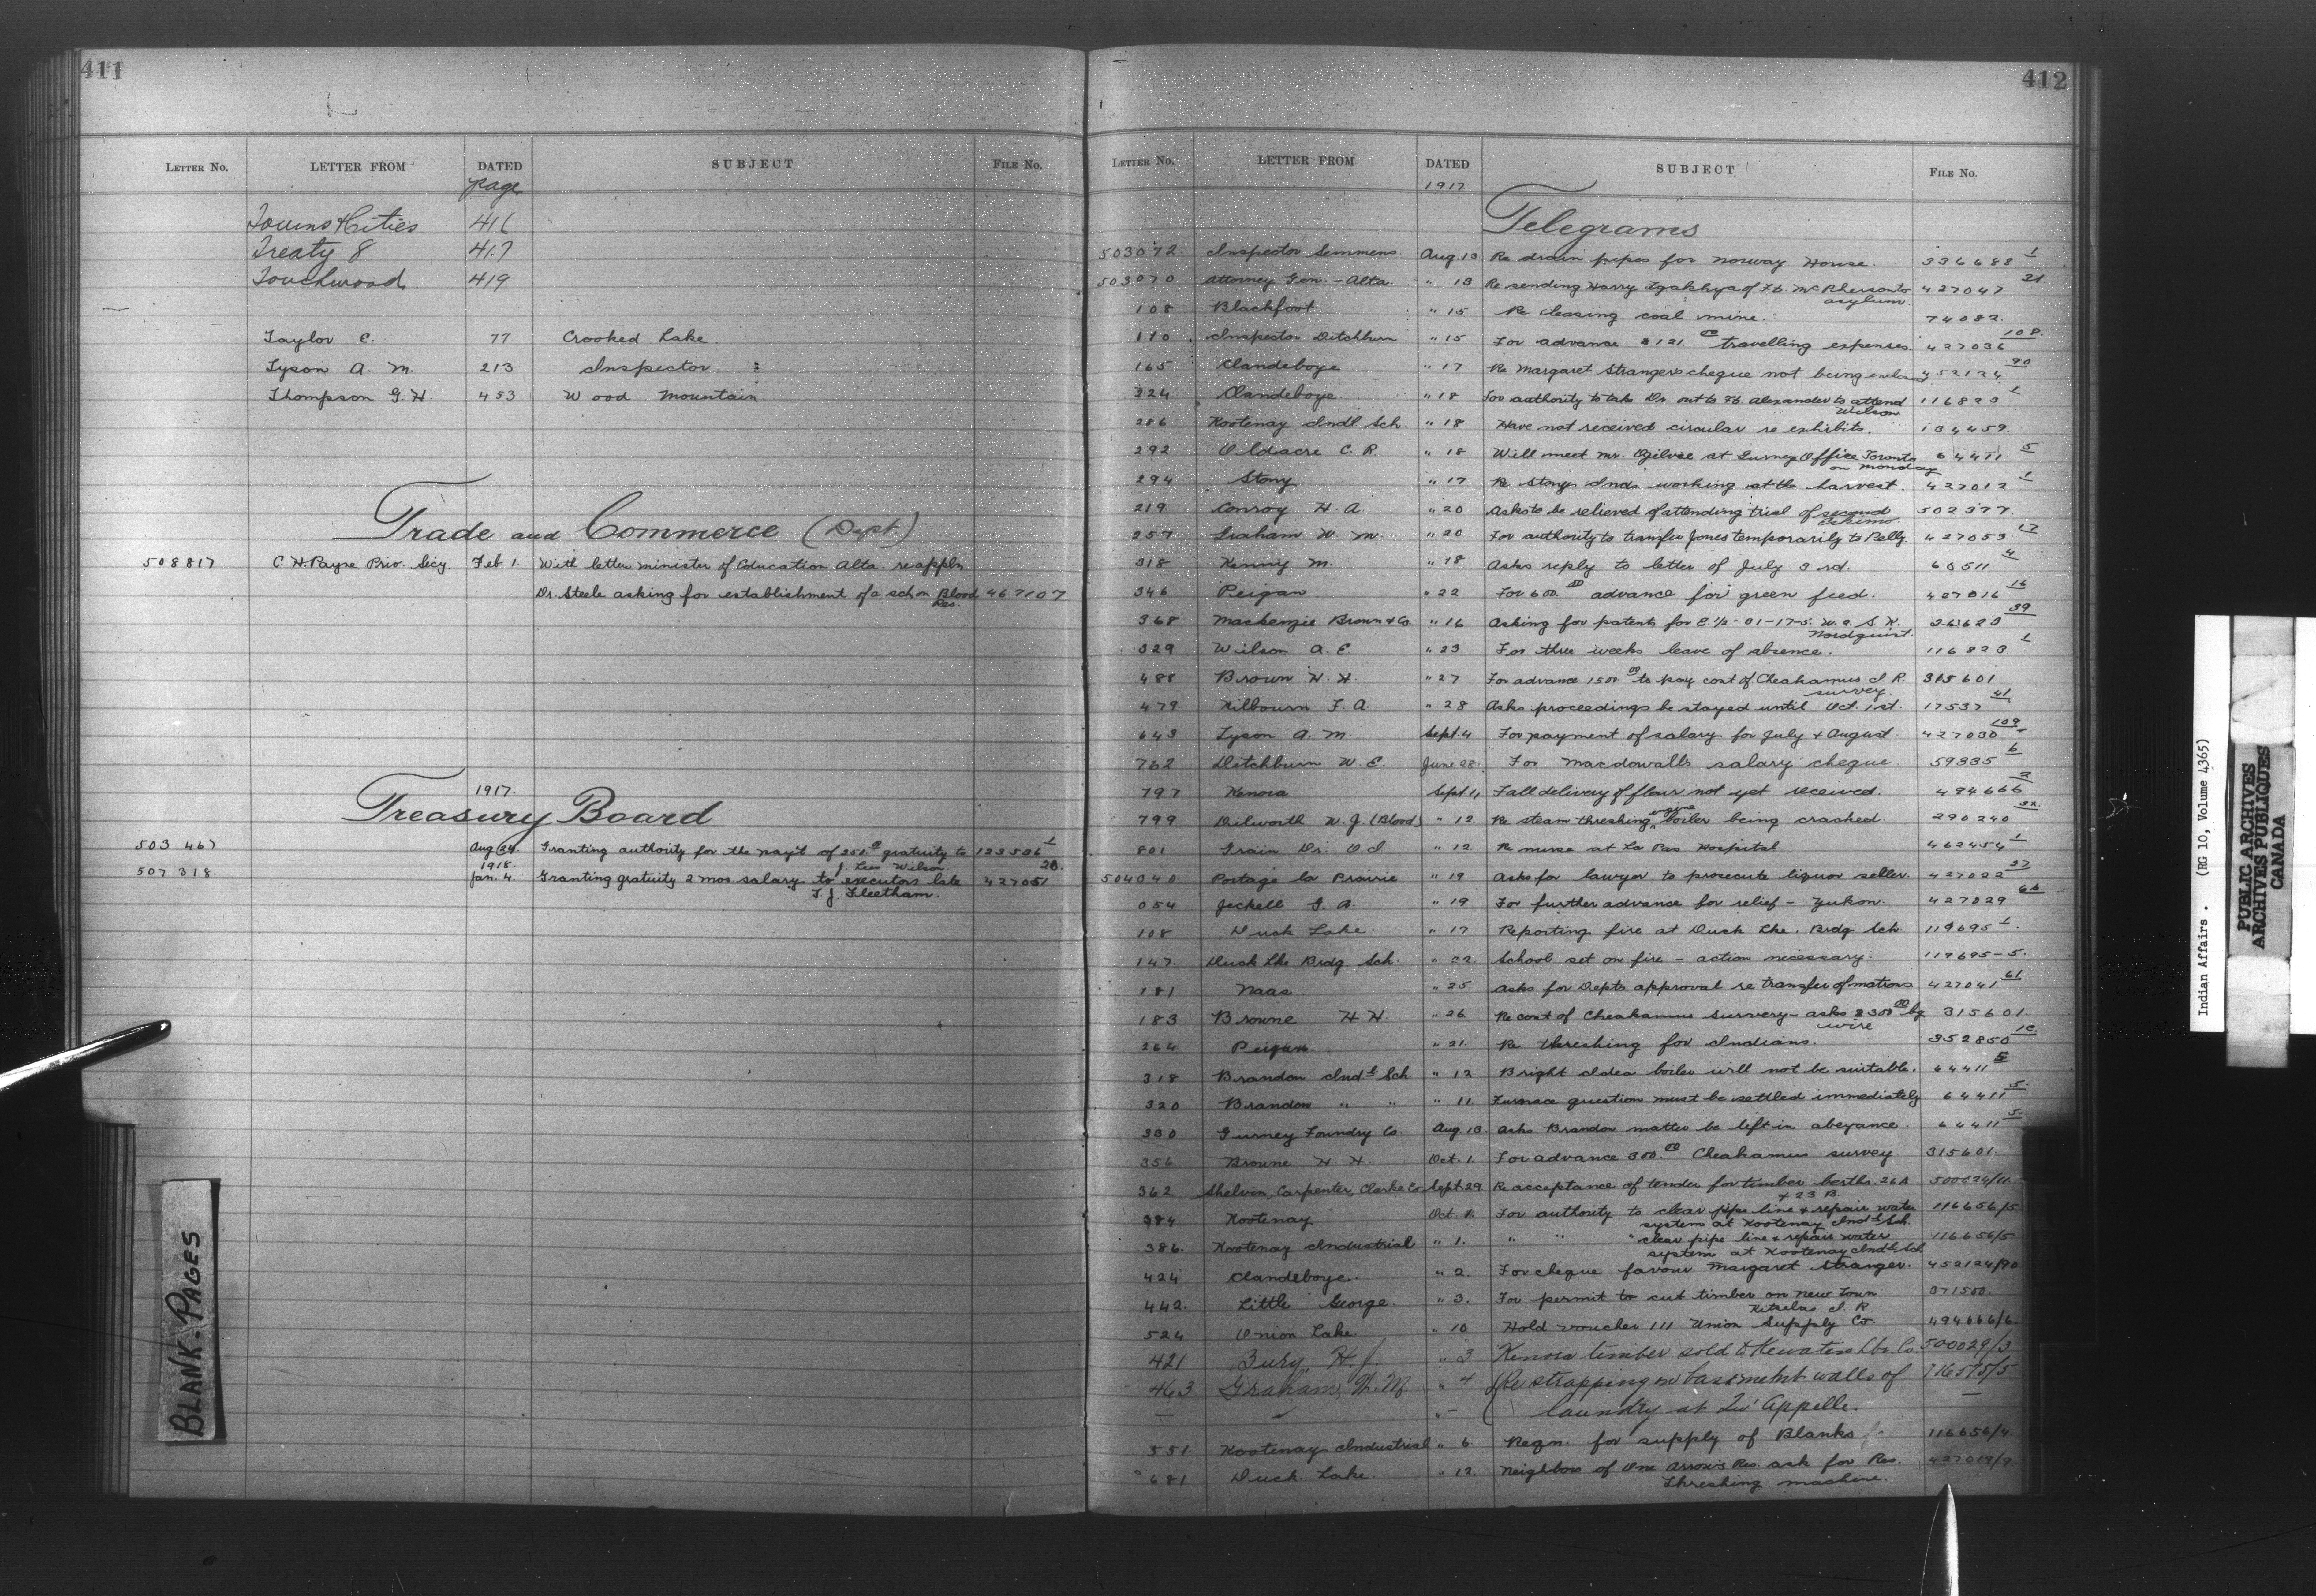 411
LETTER No. LETTER FROM DATED SUBJECT FILE No.
page
Towns & Cities 416
Treaty 8 417
Touchwood 419
Taylor C. 77. Crooked Lake.
Tyson A. M. 213 Inspector
Thompson G. H. 453 Wood Mountain
Trade and Commerce (Dept.)
508817 C. H. Payne Priv. Secy. Feb 1. With letter minister of Education Alta. re appln.
Dr. Steele asking for establishment of a sch on Blood 467107
Res.
1917.
Treasury Board
503 467 Aug 24. Granting authority for the pay't of gratuity to 123536 1
1918. J. Leo Wilson.
507 318. Jan. 4. Granting gratuity 2 mos. salary to executors late 427051 20.
T. J. Fleetham.
BLANK-PAGES
412
LETTER No. LETTER FROM DATED SUBJECT FILE No.
1917
Telegrams
503072. Inspector Semmens. Aug. 13 Re drain pipes for Norway House. 336688 1
503070 Attorney Gen. - Alta. " 13 Re sending Harry of Ft. McPherson to 427047 21.
asylum.
108 Blackfoot " 15 Re cleasing coal mine. 74082.
110 Inspector Ditchburn " 15 For advance $121. 00 travelling expenses 427036 108.
165 Clandeboye " 17 Re Margaret Stranger's cheque not being 452124 90
224 Clandeboye " 18 For authority to take Dr. out to Ft. Alexander to attend 116823 1
Wilson
286 Kootenay Indl Sch. " 18 Have not received circular re exhibits. 134459.
292 Oldacre C. R. " 18 Will meet Mr. Ogilvie at Gurney Office Toronto 64411 5
on Monday
294 Stony " 17 Re Stony Inds working at the harvest. 427012 1
219 Conroy H. A. " 20 Asks to be relieved of attending trial of second 502377.
Eskimo.
257 Graham W. M. " 20 For authority to transfer Jones temporarily to Pelly. 427053 17
318 Kenny M. " 18 Asks reply to letter of July 3 rd. 63511 4
346 Peigan " 22 For 600. 00 advance for green feed. 427016 16
368 Mackenzie Brown & Co. " 16 Asking for patents for E. 1/2 - 01-17-5. W. 2. S. H. 263623 39
Nordquist.
329 Wilson A. E. " 23 For three weeks leave of absence. 116823 1
488 Brown H. H. " 27 For advance 1500 00 to pay cost of Cheakamus I. R. 315601
survey.
479 Kilbourn F. A. " 28 Asks proceedings be stayed until Oct. 1st. 17537 41
643 Tyson A. M. Sept. 4 For payment of salary for July & August. 427030 109
762 Ditchburn W. E. June 28. For Macdowall's salary cheque. 59335 6
797 Kenora Sept 11 Fall delivery of flour not yet received. 494666 2
799 Dilworth W. J. (Blood) " 12. Re steam threshing engine boiler being crashed. 290240 32.
801 Grain Dr. O. I. " 12. Re nurse at La Pas Hospital 462454 1
504040 Portage la Prairie " 19 Asks for lawyer to prosecute liquor seller. 427022 37
054 Jeckell G. A. " 19 For further advance for relief - Yukon. 427029 66
108 Duck Lake. " 17 Reporting fire at Duck Lke. Brdg Sch. 119695 1.
147. Duck Lke Brdg. Sch. " 22. School set on fire - action necessary. 119695-5.
181 Naas " 25 Asks for Depts approval re transfer of matrons 427041 61
183 Browne H H. " 26 Re cost of Cheakamus survery - asks $300 00 by 315601.
wire
264 Peigan. " 21. Re threshing for Indians. 352850 10
318 Brandon Indl Sch. " 12 Bright Idea boiler will not be suitable. 64411 5
320 Brandon " " " 11. Furnace question must be settled immediately 64411 5.
330 Gurney Foundry Co. Aug. 13. Asks Brandon matter be left in abeyance. 64411 5.
356 Browne H. H. Oct. 1. For advance 300. 00 Cheakamus survey 315601.
362 Shelvin, Carpenter, Clarke Co. Sept. 29 Re acceptance of tender for timber berths. 26A 500024/11
& 23 B
384 Kootenay Oct. 1. For authority to clear pipe line & repair water 116656/5
system at Kootenay Indl Sch.
386. Kootenay Industrial " 1. " " " clear pipe line & repair water 116656/5
system at Kootenay Indl. Sch
424 Clandeboye. " 2. For cheque favour Margaret Stranger. 452124/90
442. Little George. " 3. For permit to cut timber on New Town 371500.
Kitselas I. R.
524 Onion Lake. " 10 Hold voucher 111 Union Supply Co. 494666/6.
421 Bury, H. J. " 3 Kenora timber sold to Keewatin Lbr. Co. 500029/3
463 Graham, W. M. " 4 Re strapping on basement walls of 116575/5
— " - laundry at Qu'Appelle. —
551 Kootenay Industrial " 6 Reqn. for supply of Blanks 116656/4
681 Duck Lake. " 12. Neighbors of One Arrow's Res. ask for Res. 427019/9
threshing machine.
Indian Affairs. (RG 10, Volume 4365)
PUBLIC ARCHIVES
ARCHIVES PUBLIQUES
CANADA